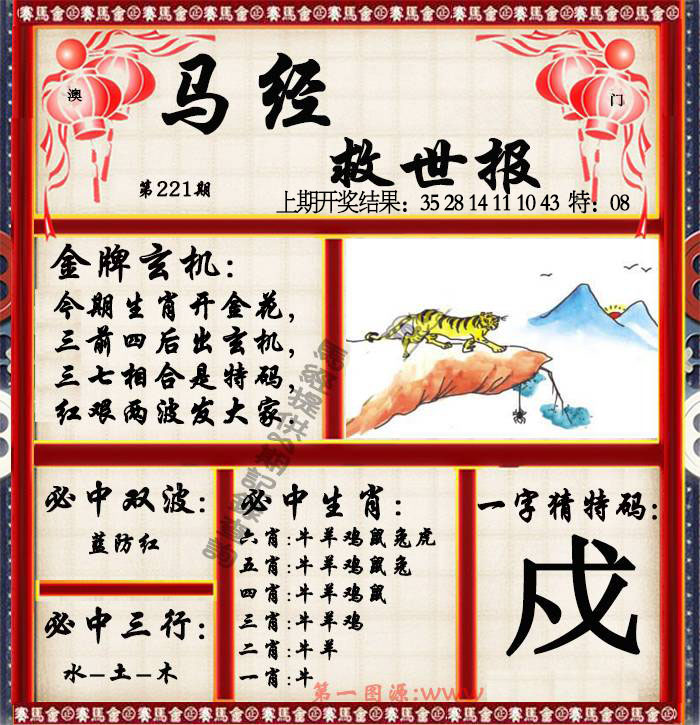 賽馬會 賽馬會 賽馬會 賽馬會 賽馬會 賽馬會 賽馬會 賽馬會
澳 门
马经
救世报
第221期
上期开奖结果：35 28 14 11 10 43 特：08
金牌玄机：
今期生肖开金花，
三前四后出玄机，
三七相合是特码，
红艰两波发大家.
必中双波：
蓝防红
必中三行：
水–土–木
必中生肖：
六肖：牛羊鸡鼠兔虎
五肖：牛羊鸡鼠兔
四肖：牛羊鸡鼠
三肖：牛羊鸡
二肖：牛羊
一肖：牛
一字猜特码：
戍
第一图源:www